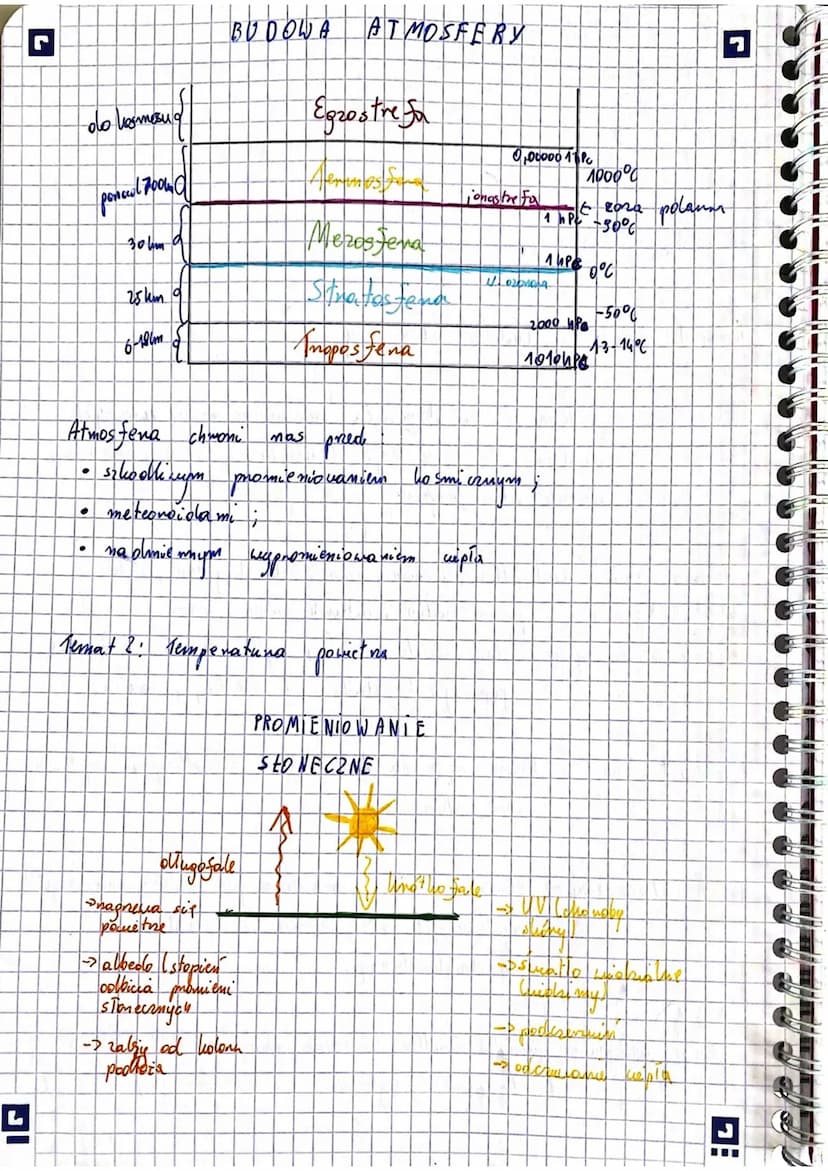 BUDOWA ATMOSFERY
do kosmosu
Egzostrefa
0,000001 hPa
1000°C
Termosfera
ponad 700km
jonostrefa
zorza polarna
1 hPa
-90°C
30 km
Mezosfera
1 hPa
0°C
w. ozonowa
25 km
Stratosfera
-50°C
2000 hPa
6-18km
Troposfera
13-14°C
1010hPa
Atmosfera chroni nas przed:
• szkodliwym promieniowaniem kosmicznym;
• meteoroidami;
• nadmiernym wypromieniowaniem ciepła
Temat 2: Temperatura powietrza
PROMIENIOWANIE
SŁONECZNE
długofale
krótkofale
→nagrzewa się
powietrze
→ albedo (stopień
odbicia promieni
słonecznych
→ zależy od koloru
podłoża
→ UV (choroby
skóry)
→ światło widzialne
(widzimy)
→ podczerwień
→ odczuwanie ciepła